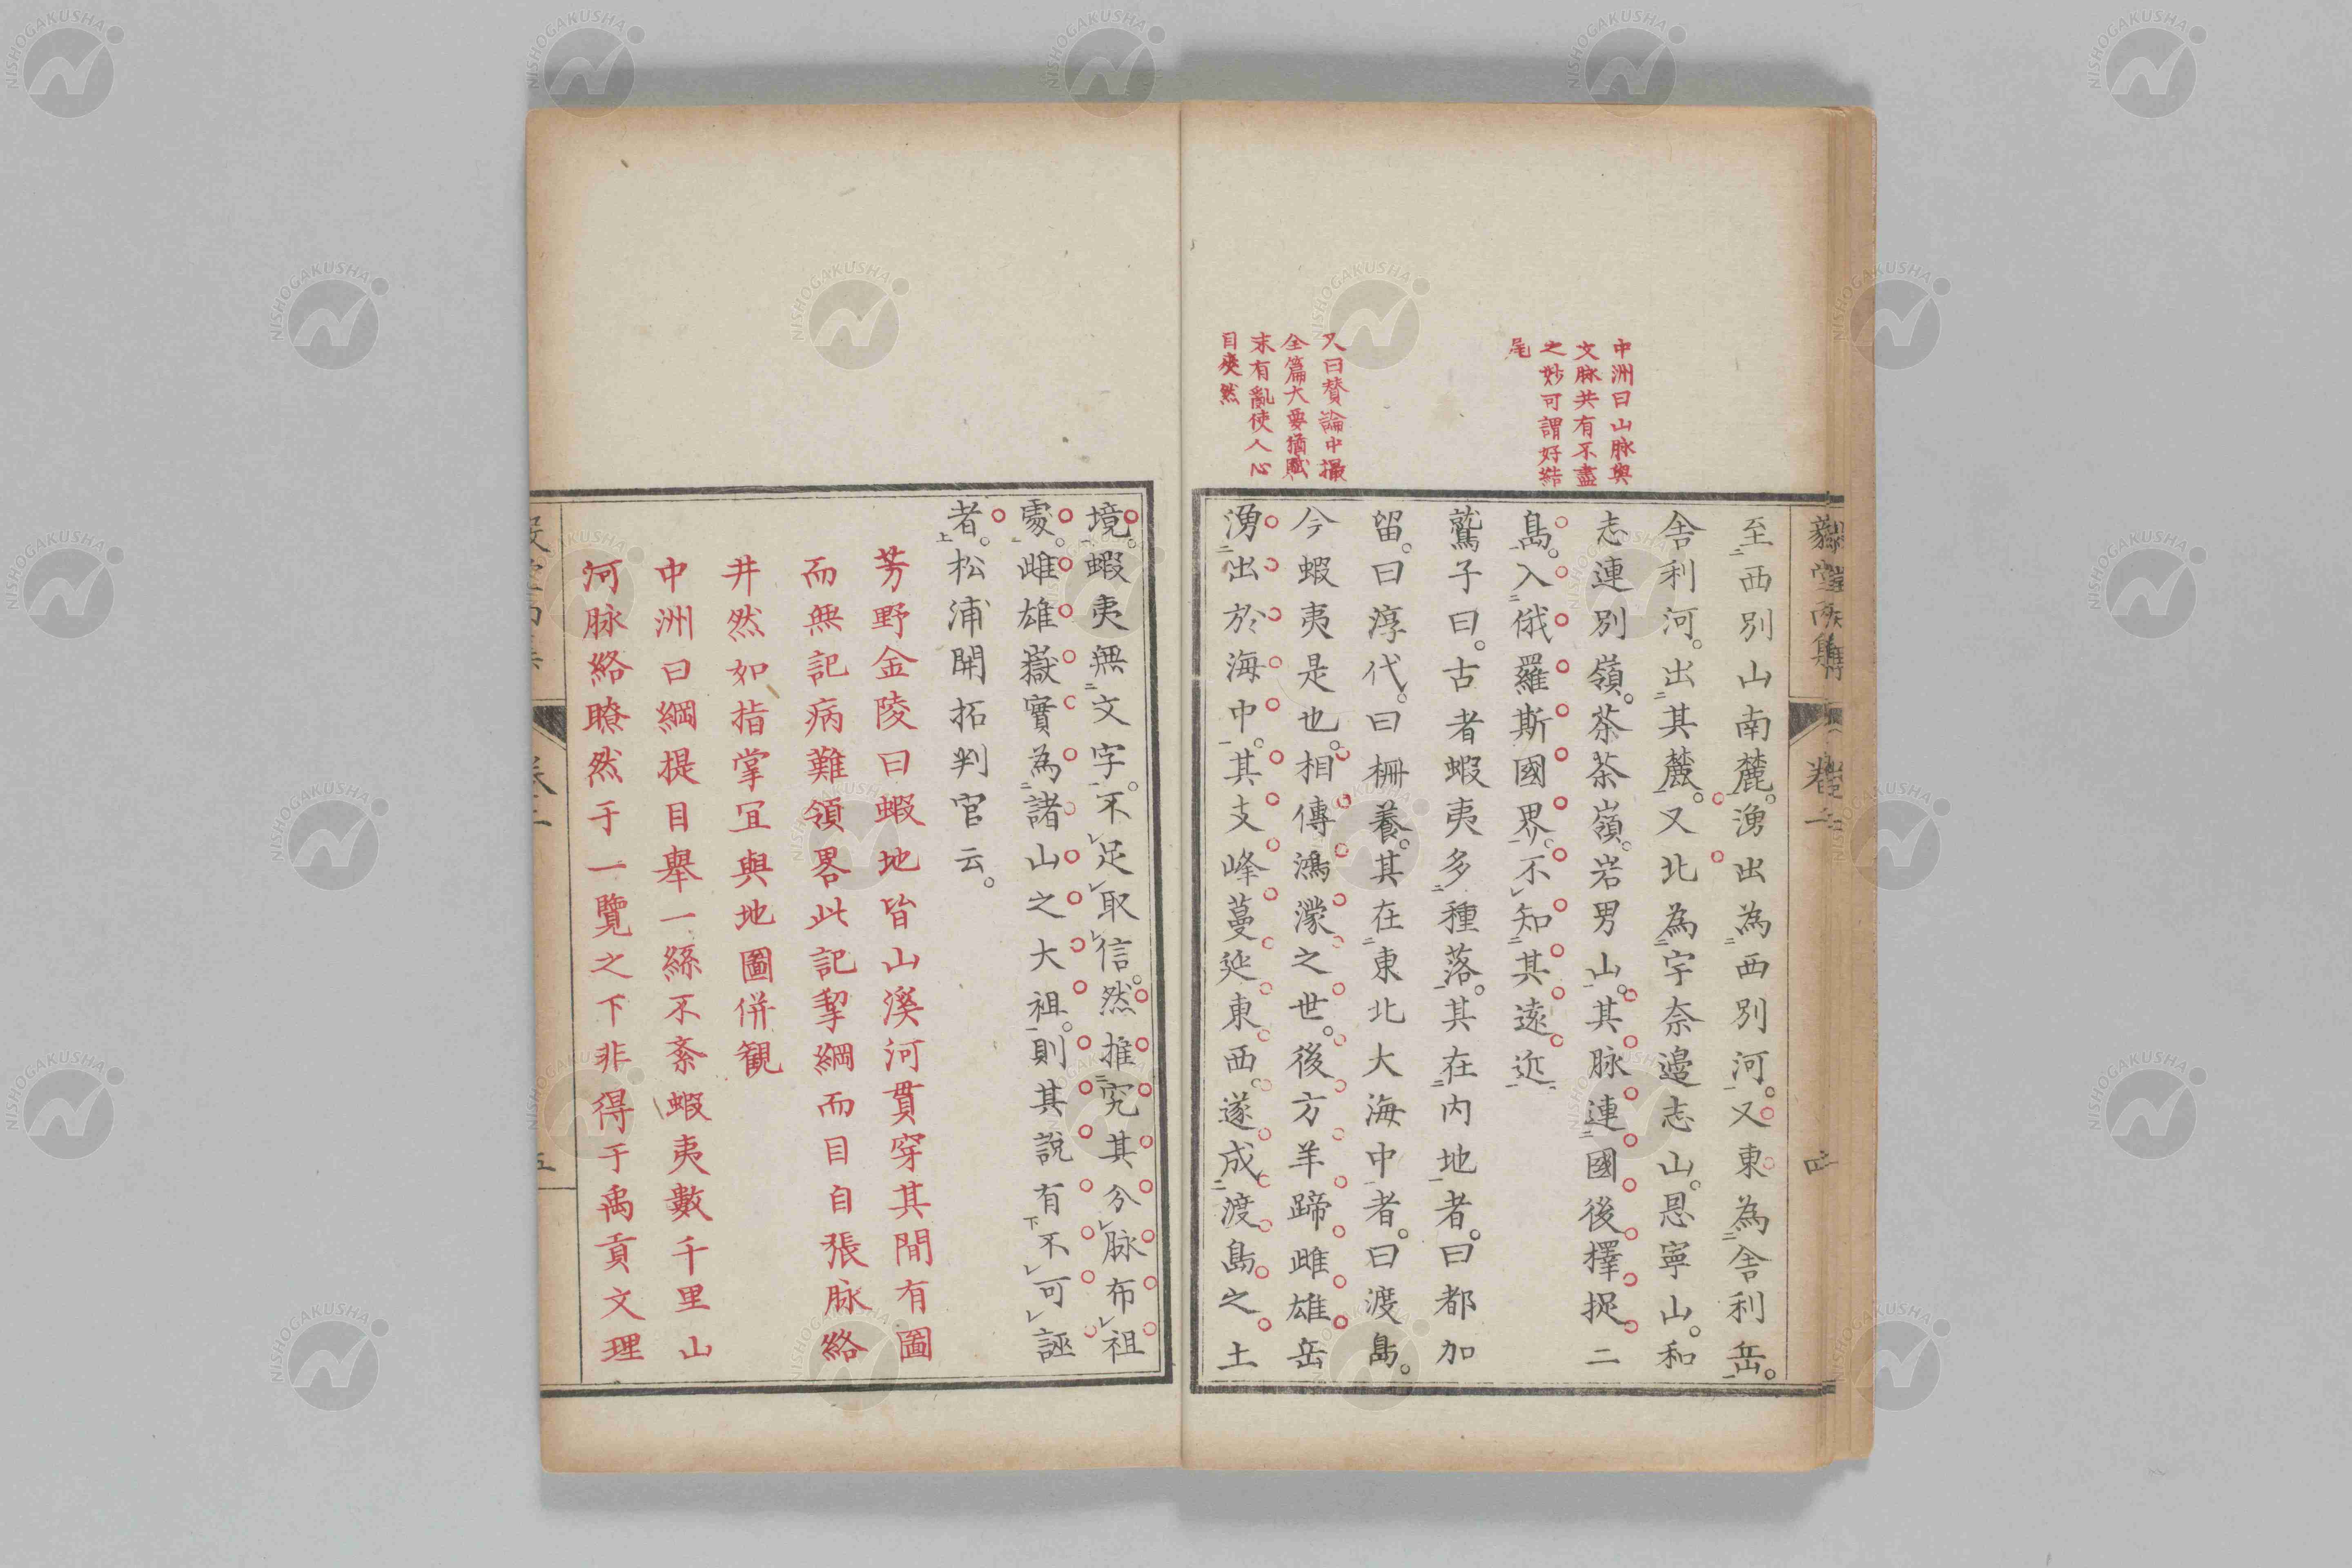 中洲曰山脉與
文脉共有不盡
之妙可謂好結
尾
又曰贊論中撮
全篇大要猶賦
末有亂使人心
目爽然
至西別山南麓。湧出為西別河。又東為舎利岳。
舎利河。出其麓。又北為宇奈邊志山。恩寧山。和
志連別嶺。茶茶嶺。岩男山。其脉連國後擇捉二
島。入俄羅斯國界。不知其遠近
鷲子曰。古者蝦夷多種落。其在内地者。曰都加
留。曰渟代。曰柵養。其在東北大海中者。曰渡島。
今蝦夷是也。相傳鴻濛之世。後方羊蹄雌雄岳
湧出於海中。其支峰蔓延東西。遂成渡島之土
境。蝦夷無文字。不足取信。然推究其分脉布祖
處。雌雄嶽實為諸山之大祖。則其說有不可誣
者。松浦開拓判官云。
芳野金陵曰蝦地皆山溪河貫穿其間有圖
而無記病難領畧此記挈綱而目自張脉絡
井然如指掌冝與地圖併観
中洲曰綱提目舉一絲不紊蝦夷數千里山
河脉絡瞭然于一覽之下非得于禹貢文理
卷二
四
五
NISHOGAKUSHA